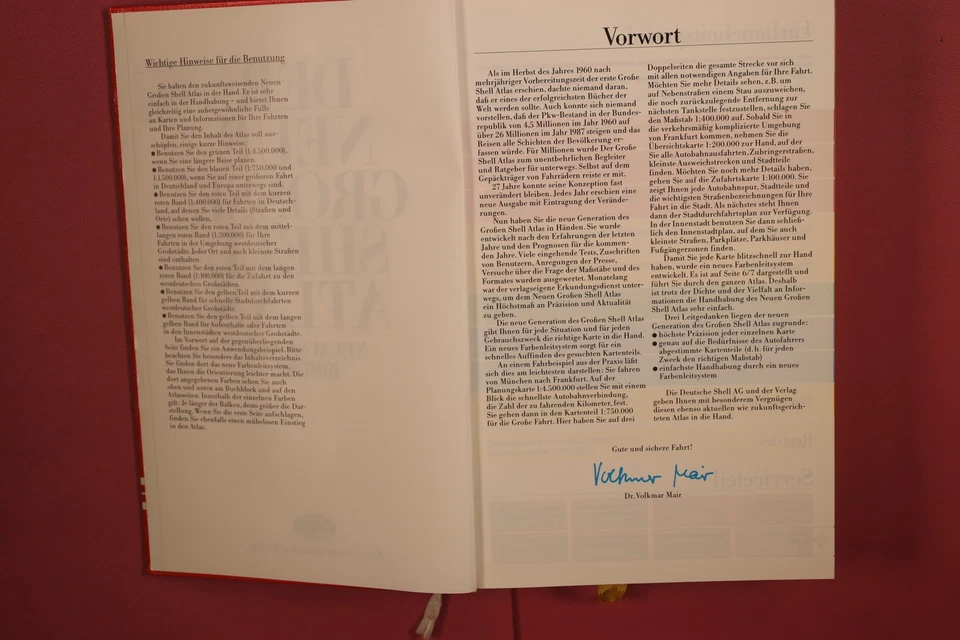 Wichtige Hinweise für die Benutzung
Sie halten den zukunftsweisenden Neuen
Großen Shell Atlas in der Hand. Er ist sehr
einfach in der Handhabung – und bietet Ihnen
gleichzeitig eine außergewöhnliche Fülle
an Karten und Informationen für Ihre Fahrten
und Ihre Planung.
Damit Sie den Inhalt des Atlas voll aus-
schöpfen, einige kurze Hinweise:
● Benutzen Sie den grünen Teil (1:4.500.000),
wenn Sie eine längere Reise planen.
● Benutzen Sie den blauen Teil (1:750.000 und
1:4.500.000), wenn Sie auf einer größeren Fahrt
in Deutschland und Europa unterwegs sind.
● Benutzen Sie den roten Teil mit dem kurzen
roten Band (1:400.000) für Fahrten in Deutsch-
land, auf denen Sie viele Details (Straßen und
Orte) sehen wollen.
● Benutzen Sie den roten Teil mit dem mittel-
langen roten Band (1:200.000) für Ihre
Fahrten in der Umgebung westdeutscher
Großstädte. Jeder Ort und auch kleinste Straßen
sind enthalten.
● Benutzen Sie den roten Teil mit dem langen
roten Band (1:100.000) für die Zufahrt zu den
westdeutschen Großstädten.
● Benutzen Sie den gelben Teil mit dem kurzen
gelben Band für schnelle Stadtdurchfahrten
westdeutscher Großstädte.
● Benutzen Sie den gelben Teil mit dem langen
gelben Band für Aufenthalte oder Fahrten
in den Innenstädten westdeutscher Großstädte.
Im Vorwort auf der gegenüberliegenden
Seite finden Sie ein Anwendungsbeispiel. Bitte
beachten Sie besonders das Inhaltsverzeichnis.
Sie finden dort das neue Farbenleitsystem,
das Ihnen die Orientierung leichter macht. Die
dort angegebenen Farben sehen Sie auch
oben und unten am Buchblock und auf den
Atlasseiten. Innerhalb der einzelnen Farben
gilt: Je länger der Balken, desto größer die Dar-
stellung. Wenn Sie die erste Seite aufschlagen,
finden Sie ebenfalls einen mühelosen Einstieg
in den Atlas.
Vorwort
Als im Herbst des Jahres 1960 nach
mehrjähriger Vorbereitungszeit der erste Große
Shell Atlas erschien, dachte niemand daran,
daß er eines der erfolgreichsten Bücher der
Welt werden sollte. Auch konnte sich niemand
vorstellen, daß der Pkw-Bestand in der Bundes-
republik von 4,5 Millionen im Jahr 1960 auf
über 26 Millionen im Jahr 1987 steigen und das
Reisen alle Schichten der Bevölkerung er-
fassen würde. Für Millionen wurde Der Große
Shell Atlas zum unentbehrlichen Begleiter
und Ratgeber für unterwegs. Selbst auf dem
Gepäckträger von Fahrrädern reiste er mit.
27 Jahre konnte seine Konzeption fast
unverändert bleiben. Jedes Jahr erschien eine
neue Ausgabe mit Eintragung der Verände-
rungen.
Nun haben Sie die neue Generation des
Großen Shell Atlas in Händen. Sie wurde
entwickelt nach den Erfahrungen der letzten
Jahre und den Prognosen für die kommen-
den Jahre. Viele eingehende Tests, Zuschriften
von Benutzern, Anregungen der Presse,
Versuche über die Frage der Maßstäbe und des
Formates wurden ausgewertet. Monatelang
war der verlagseigene Erkundungsdienst unter-
wegs, um dem Neuen Großen Shell Atlas
ein Höchstmaß an Präzision und Aktualität
zu geben.
Die neue Generation des Großen Shell Atlas
gibt Ihnen für jede Situation und für jeden
Gebrauchszweck die richtige Karte in die Hand.
Ein neues Farbenleitsystem sorgt für ein
schnelles Auffinden des gesuchten Kartenteils.
An einem Fahrbeispiel aus der Praxis läßt
sich dies am leichtesten darstellen: Sie fahren
von München nach Frankfurt. Auf der
Planungskarte 1:4.500.000 stellen Sie mit einem
Blick die schnellste Autobahnverbindung,
die Zahl der zu fahrenden Kilometer, fest.
Sie gehen dann in den Kartenteil 1:750.000
für die Große Fahrt. Hier haben Sie auf drei
Doppelseiten die gesamte Strecke vor sich
mit allen notwendigen Angaben für Ihre Fahrt.
Möchten Sie mehr Details sehen, z.B. um
auf Nebenstraßen einem Stau auszuweichen,
die noch zurückzulegende Entfernung zur
nächsten Tankstelle festzustellen, schlagen Sie
den Maßstab 1:400.000 auf. Sobald Sie in
die verkehrsmäßig komplizierte Umgebung
von Frankfurt kommen, nehmen Sie die
Übersichtskarte 1:200.000 zur Hand, auf der
Sie alle Autobahnausfahrten, Zubringerstraßen,
kleinste Ausweichstrecken und Stadtteile
finden. Möchten Sie noch mehr Details haben,
gehen Sie auf die Zufahrtskarte 1:100.000. Sie
zeigt Ihnen jede Autobahnspur, Stadtteile und
die wichtigsten Straßenbezeichnungen für Ihre
Fahrt in die Stadt. Als nächstes steht Ihnen
dann der Stadtdurchfahrtsplan zur Verfügung.
In der Innenstadt benutzen Sie dann schließ-
lich den Innenstadtplan, auf dem Sie auch
kleinste Straßen, Parkplätze, Parkhäuser und
Fußgängerzonen finden.
Damit Sie jede Karte blitzschnell zur Hand
haben, wurde ein neues Farbenleitsystem
entwickelt. Es ist auf Seite 6/7 dargestellt und
führt Sie durch den ganzen Atlas. Deshalb
ist trotz der Dichte und der Vielfalt an Infor-
mationen die Handhabung des Neuen Großen
Shell Atlas sehr einfach.
Drei Leitgedanken liegen der neuen
Generation des Großen Shell Atlas zugrunde:
● höchste Präzision jeder einzelnen Karte
● genau auf die Bedürfnisse des Autofahrers
abgestimmte Kartenteile (d.h. für jeden
Zweck den richtigen Maßstab)
● einfachste Handhabung durch ein neues
Farbenleitsystem
Die Deutsche Shell AG und der Verlag
geben Ihnen mit besonderem Vergnügen
diesen ebenso aktuellen wie zukunftsgerich-
teten Atlas in die Hand.
Gute und sichere Fahrt!
Volkmar Mair
Dr. Volkmar Mair